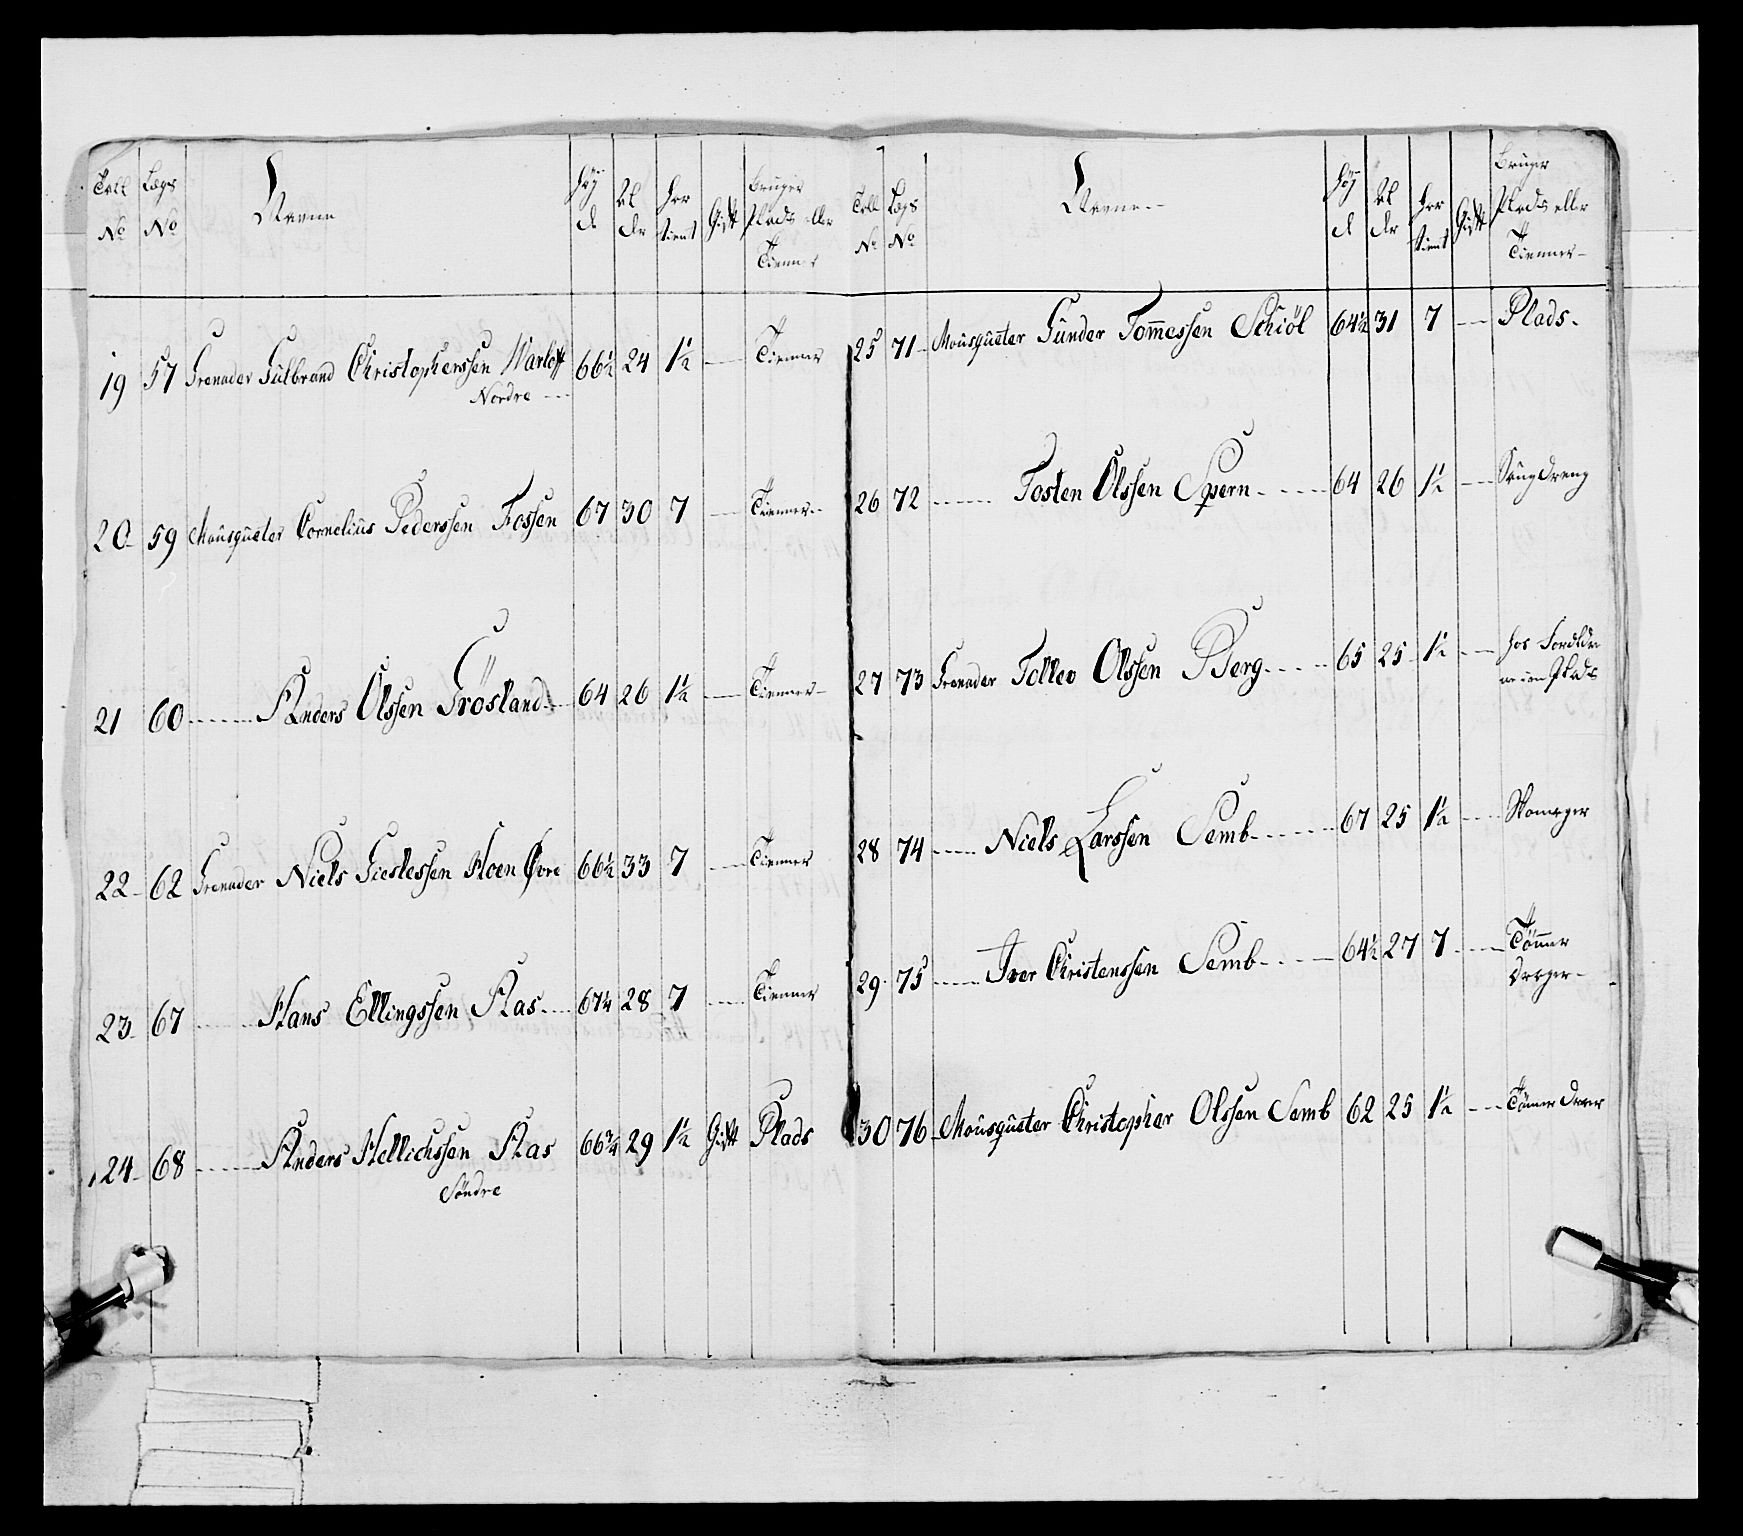 Tall No Lægs No Navne Høyd Alder Har tient Gift Bruger Plads eller Tienner
19 57 Grenader Gulbrand Christopherssen Warloff 66½ 24 1½ --- Tienner
Nordre ---
20 59 Mousqueter Cornelius Pederssen Fossen 67 30 7 --- Tienner
21 60 --- Anders Olssen Frösland 64 26 1½ --- Tienner
22 62 Grenader Niels Gieslessen Hoen Øvre 66½ 33 7 --- Tienner
23 67 --- Hans Ellingssen Aas --- 67¼ 28 7 --- Tienner
24 68 --- Anders Hellichssen Aas 66¾ 29 1½ Gift Plads
Söndre
Tall No Lægs No Navne Høyd Alder Har tient Gift Bruger Plads eller Tienner
25 71 Mousqueter Gunder Tom̄essen Schiöl 64½ 31 7 --- Plads
26 72 --- Tosten Olssen Spern --- 64 26 1½ --- Saugdreng
27 73 Grenader Tollev Olssen Berg --- 65 25 1½ --- hos Foreldre
Plads
28 74 --- Niels Larssen Semb --- 67 25 1½ --- Skomager
29 75 --- Iver Christenssen Semb --- 64½ 27 7 --- Tømmer
Drager
30 76 Mousqueter Christopher Olssen Semb 62 25 1½ --- Tømmer